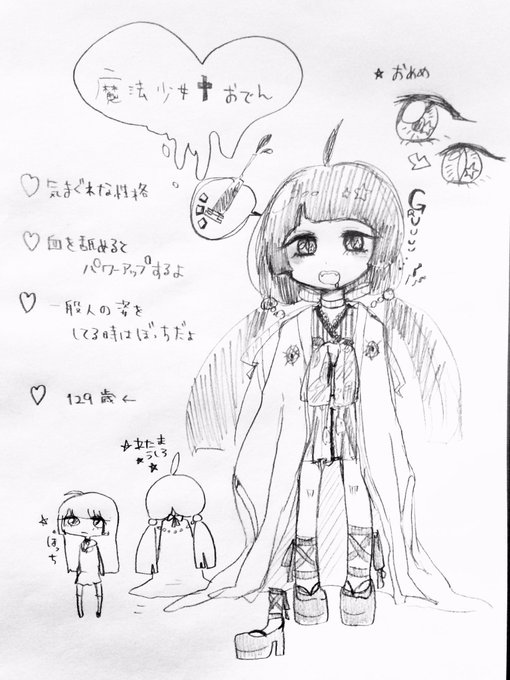 魔法少女✝おでん
☆ おめめ
♡ 気まぐれな性格
♡ 血を舐めると
パワーアップするよ
♡ 一般人の姿を
してる時はぼっちだよ
♡ 129歳 ←
GRUUUU
☆ あたま
うしろ
☆ ぼっち